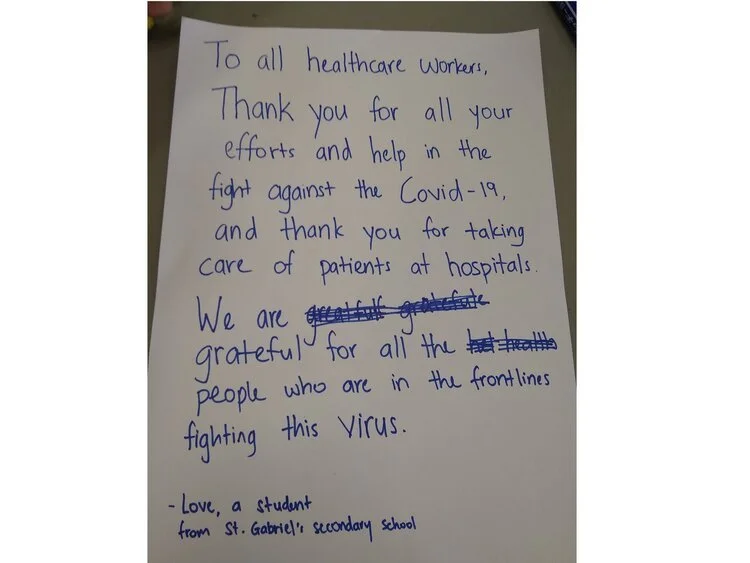 To all healthcare workers,
Thank you for all your
efforts and help in the
fight against the Covid-19,
and thank you for taking
care of patients at hospitals.
We are
grateful for all the
people who are in the frontlines
fighting this virus.
- Love, a student
from St. Gabriel's secondary school